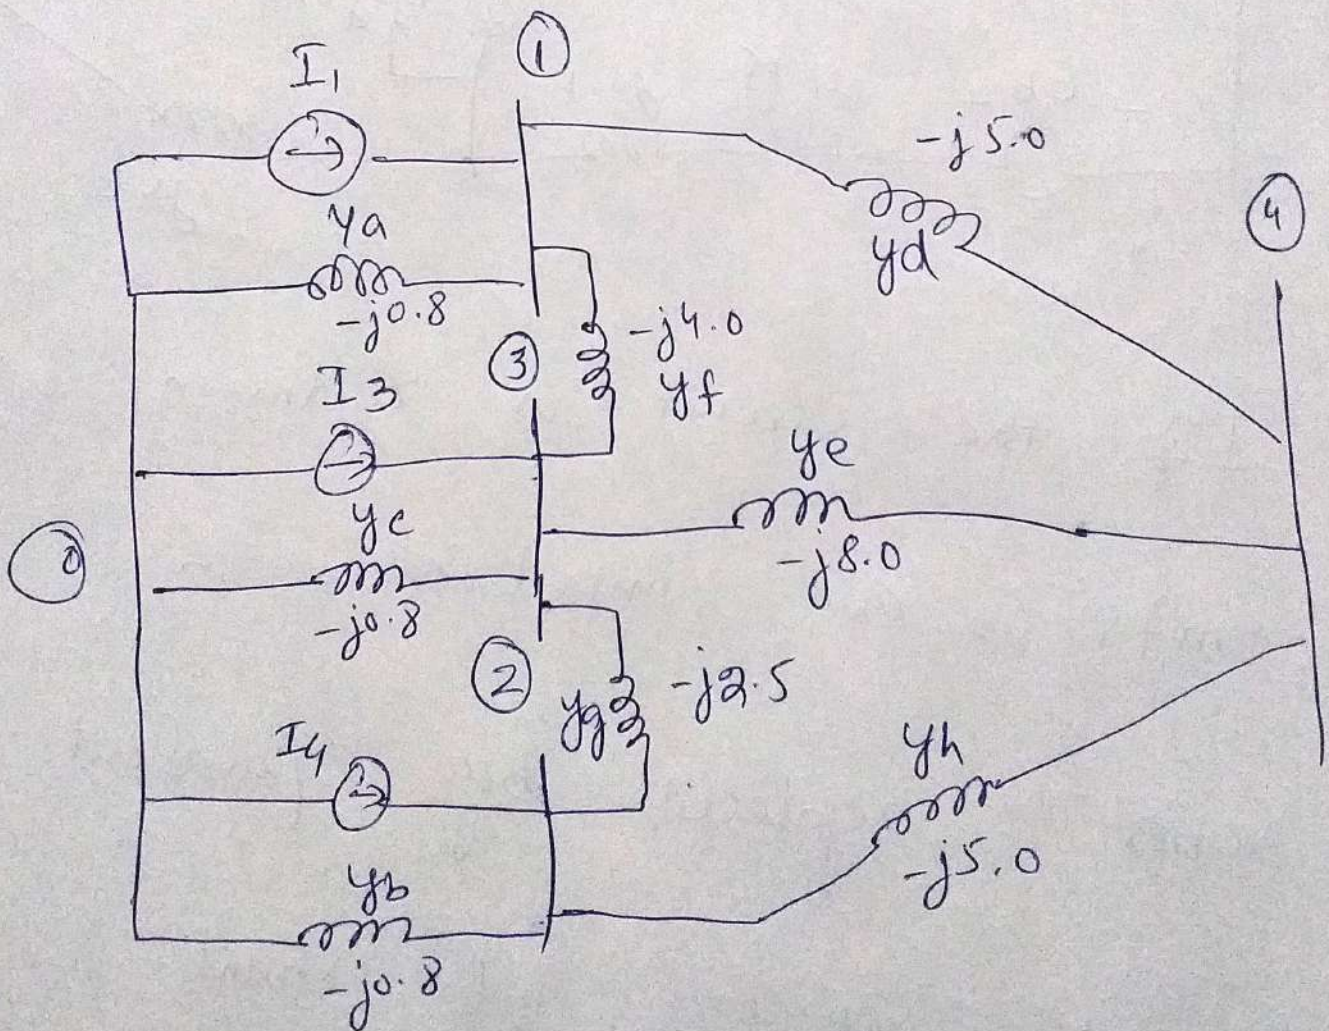 ①
I₁
-j5.0
④
ya
yd
-j0.8
-j4.0
③
yf
I3
ye
yc
-j8.0
⓪
-j0.8
②
-j2.5
yg
I4
yh
-j5.0
yb
-j0.8